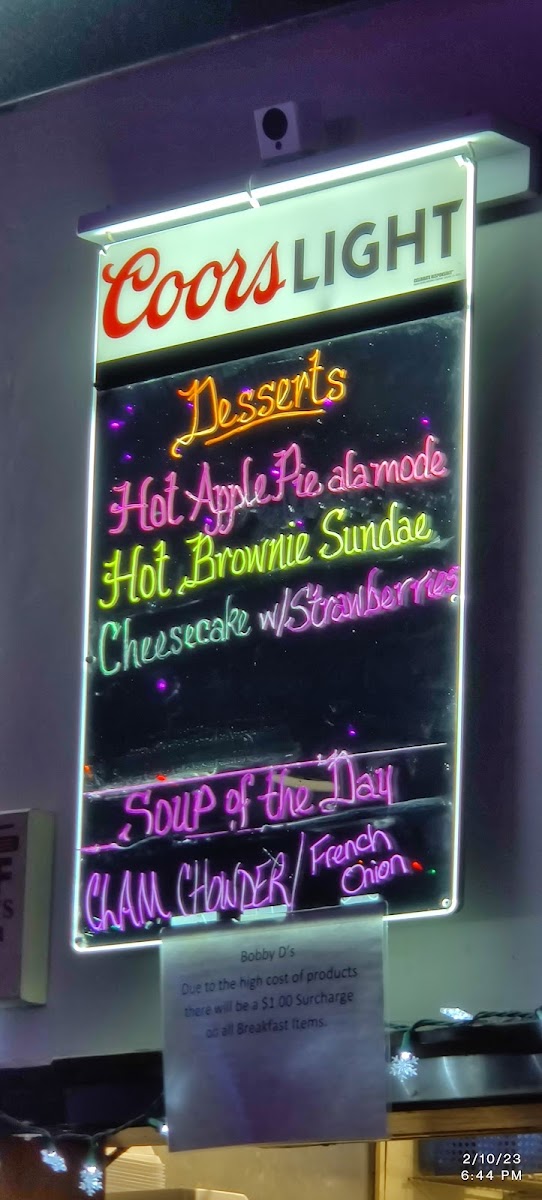 Coors LIGHT
Desserts
Hot Apple Pie alamode
Hot Brownie Sundae
Cheesecake w/Strawberries
Soup of the Day
CLAM CHOWDER/ French
Onion
Bobby D's
Due to the high cost of products
there will be a $1.00 Surcharge
on all Breakfast Items.
2/10/23
6:44 PM